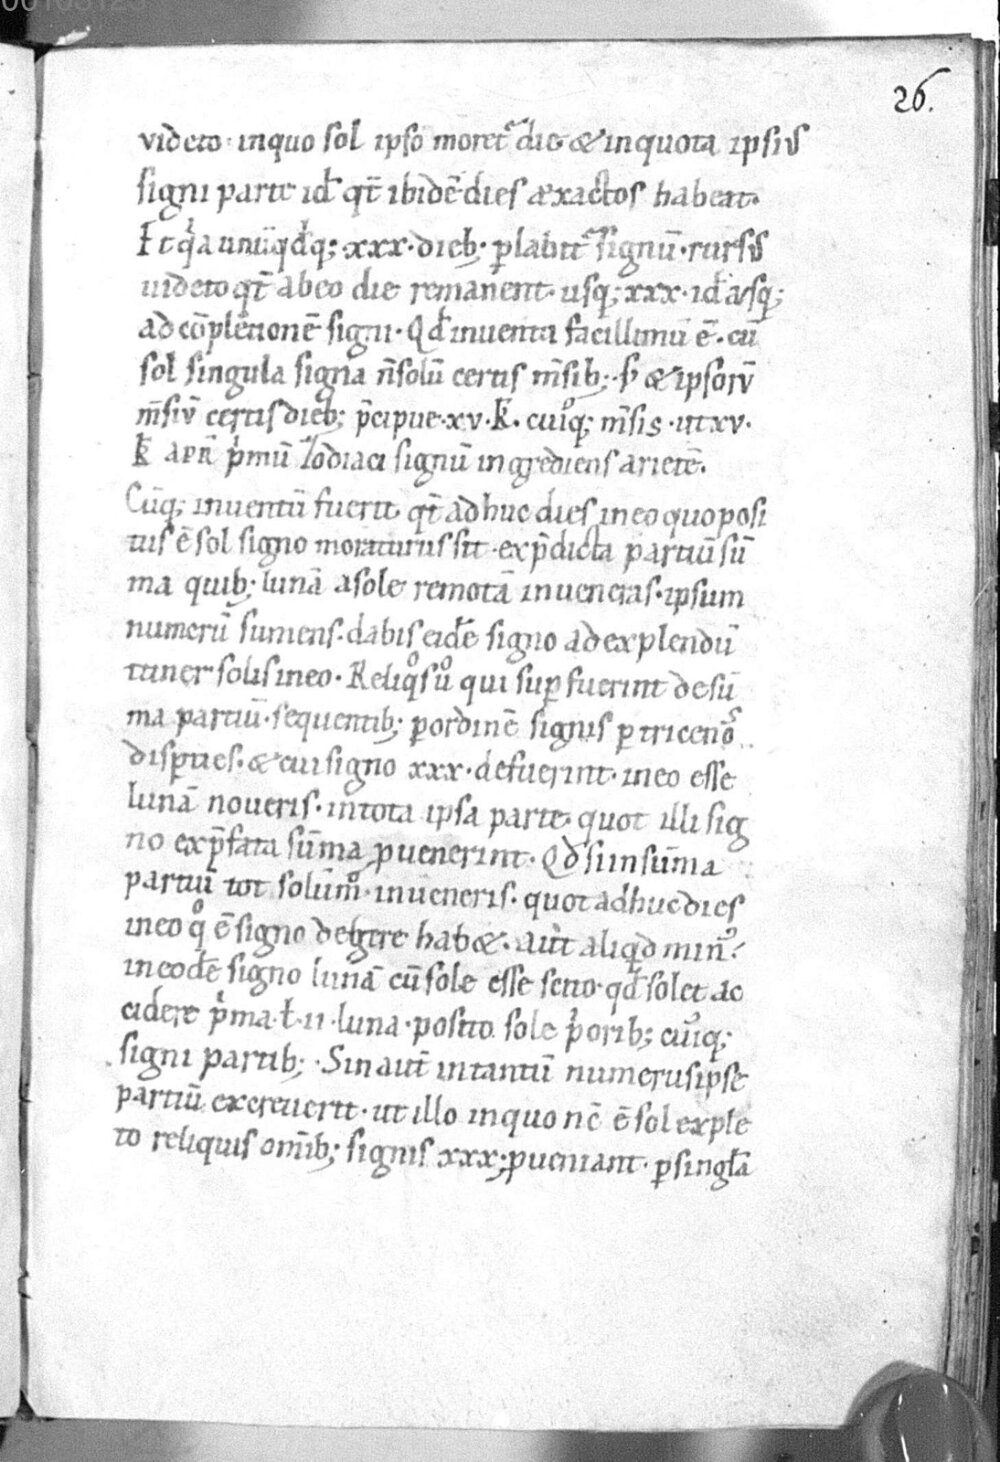 00103123
26.
videto · inquo sol ipso moret᷑ die & inquota ipsius
signi parte id ÷ q̄t ibidē dies exactos habeat.
Et q̇a unūqd́q; xxx · dieb; p̲labit᷑ signū · rursus
uideto q̄t ab eo die remanent · usq; xxx · id ÷ usq;
ad cōpletionē signi · Qd́ inventu facillimū ē · cū
sol singula signa n̄ solū certis m̄sib; · s; & ipsorū
m̄siū certis dieb; p̄cipue · xv · k̄ · cuiᷣq; m̄sis · ut xv ·
k̄ apr̄ p̍mū zodiaci signū ingrediens arietē.
Cūq; inuentū fuerit q̄t adhuc dies in eo quo posi
tus ē sol signo moraturus sit · ex p̄dicta partiū sū
ma quib; lunā a sole remotā inueneras · ipsum
numerū sumens · dabis eidē signo ad explendū
itiner solis in eo · Reliqͦs ū qui sup̲ fuerint de sū
ma partiū · sequentib; p̲ ordinē signis p̲ tricenos
disp̲ties · & cui signo xxx · defuerint · in eo esse
lunā noueris · in tota ipsa parte · quot illi sig
no ex p̄fata sūma ꝓuenerint · Qd́ si in sūma
partiū tot solūmͦ · inueneris · quot adhuc dies
in eo qͦ ē signo degere hab& · aut aliqd́ min᷒
in eodē signo lunā cū sole esse scito · qd́ solet ac
cidere p̍ma · ł · ii · luna · posito sole p̍orib; cuiᷣq;
signi partib; · Sin aut̄ in tantū numerus ipse
partiū excreuerit · ut illo in quo nc̄ ē sol exple
to reliquis om̄ib; signis xxx; ꝓueniant · p̲ singła